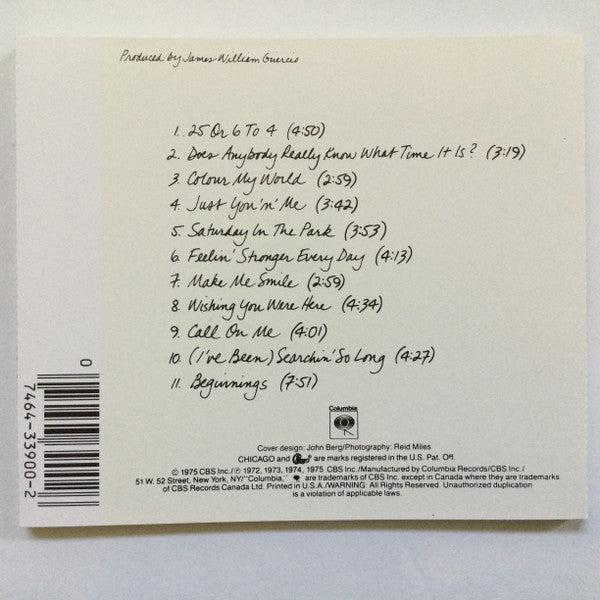 Produced by James William Guercio
1. 25 Or 6 To 4 (4:50)
2. Does Anybody Really Know What Time It Is? (3:19)
3. Colour My World (2:59)
4. Just You 'n' Me (3:42)
5. Saturday In The Park (3:53)
6. Feelin' Stronger Every Day (4:13)
7. Make Me Smile (2:59)
8. Wishing You Were Here (4:34)
9. Call On Me (4:01)
10. (I've Been) Searchin' So Long (4:27)
11. Beginnings (7:51)
0
7464-33900-2
Columbia
Cover design: John Berg/Photography: Reid Miles
CHICAGO and Chicago are marks registered in the U.S. Pat. Off.
© 1975 CBS Inc./℗ 1972, 1973, 1974, 1975 CBS Inc./Manufactured by Columbia Records/CBS Inc./
51 W. 52 Street, New York, NY/"Columbia," are trademarks of CBS Inc. except in Canada where they are trademarks
of CBS Records Canada Ltd. Printed in U.S.A./WARNING: All Rights Reserved. Unauthorized duplication
is a violation of applicable laws.